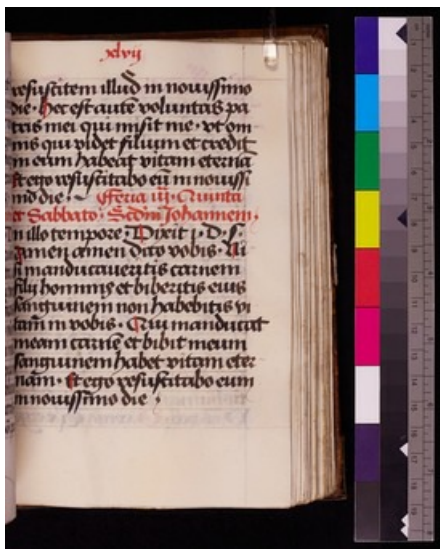 xlvij
resuscitem illud in nouissimo
die · hec est autē voluntas pa
tris mei qui misit me · vt om
nis qui videt filium et credit
in eum habeat vitam eternā
Et ego resuscitabo eū in nouissi
mo die · Feria iiij · Quinta
et Sabbato · Scdm Johannem ·
In illo tempore Dixit
amen amen dico vobis · Ni
si manducaueritis carnem
filij hominis et biberitis eius
sanguinem non habebitis vi
tam in vobis · Qui manducat
meam carnē et bibit meum
sanguinem habet vitam eter
nam · Et ego resuscitabo eum
in nouissimo die ·